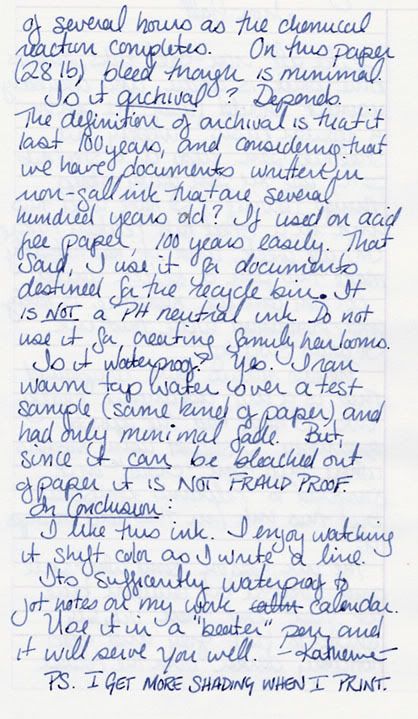 of several hours as the chemical
reaction completes. On this paper
(28 lb) bleed though is minimal.
Is it archival? Depends.
The definition of archival is that it
last 100 years, and considering that
we have documents written in
iron-gall ink that are several
hundred years old? If used on acid
free paper, 100 years easily. That
said, I use it for documents
destined for the recycle bin. It
is NOT a PH neutral ink Do not
use it for creating family heirlooms.
Is it waterproof? Yes. I ran
warm tap water over a test
sample (same kind of paper) and
had only minimal fade. But,
since it can be bleached out
of paper it is NOT FRAUD PROOF.
In Conclusion:
I like this ink. I enjoy watching
it shift color as I write a line.
Its sufficently waterproof to
jot notes on my work calendar.
Use it in a "beater" pen, and
it will serve you well. -Katherine-
PS. I GET MORE SHADING WHEN I PRINT.